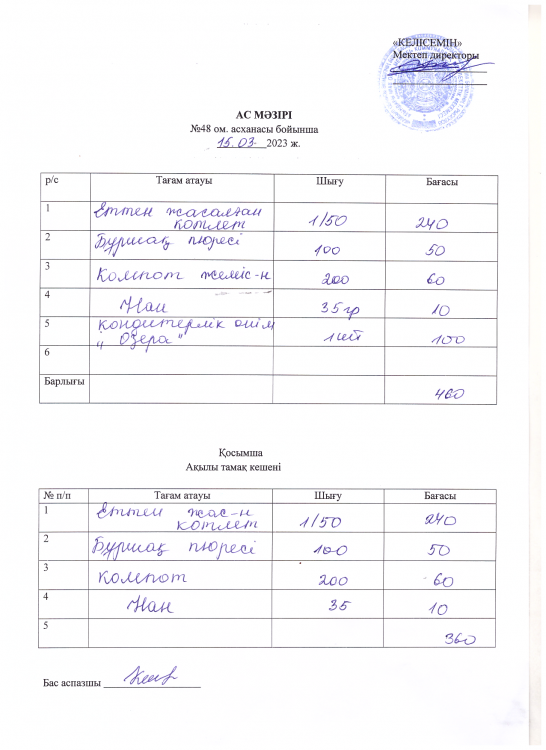 «КЕЛІСЕМІН»
Мектеп директоры
АС МӘЗІРІ
№48 ом. асханасы бойынша
15.03 2023 ж.
р/с Тағам атауы Шығу Бағасы
1 Еттен жасалған котлет 1/50 240
2 Бұршақ пюресі 100 50
3 Компот жеміс-н 200 60
4 Нан 35 гр 10
5 Кондитерлік өнім
" Озера" 1 шт 100
6
Барлығы 460
Қосымша
Ақылы тамақ кешені
№ п/п Тағам атауы Шығу Бағасы
1 Еттен жас-н котлет 1/50 240
2 Бұршақ пюресі 100 50
3 Компот 200 60
4 Нан 35 10
5 360
Бас аспазшы